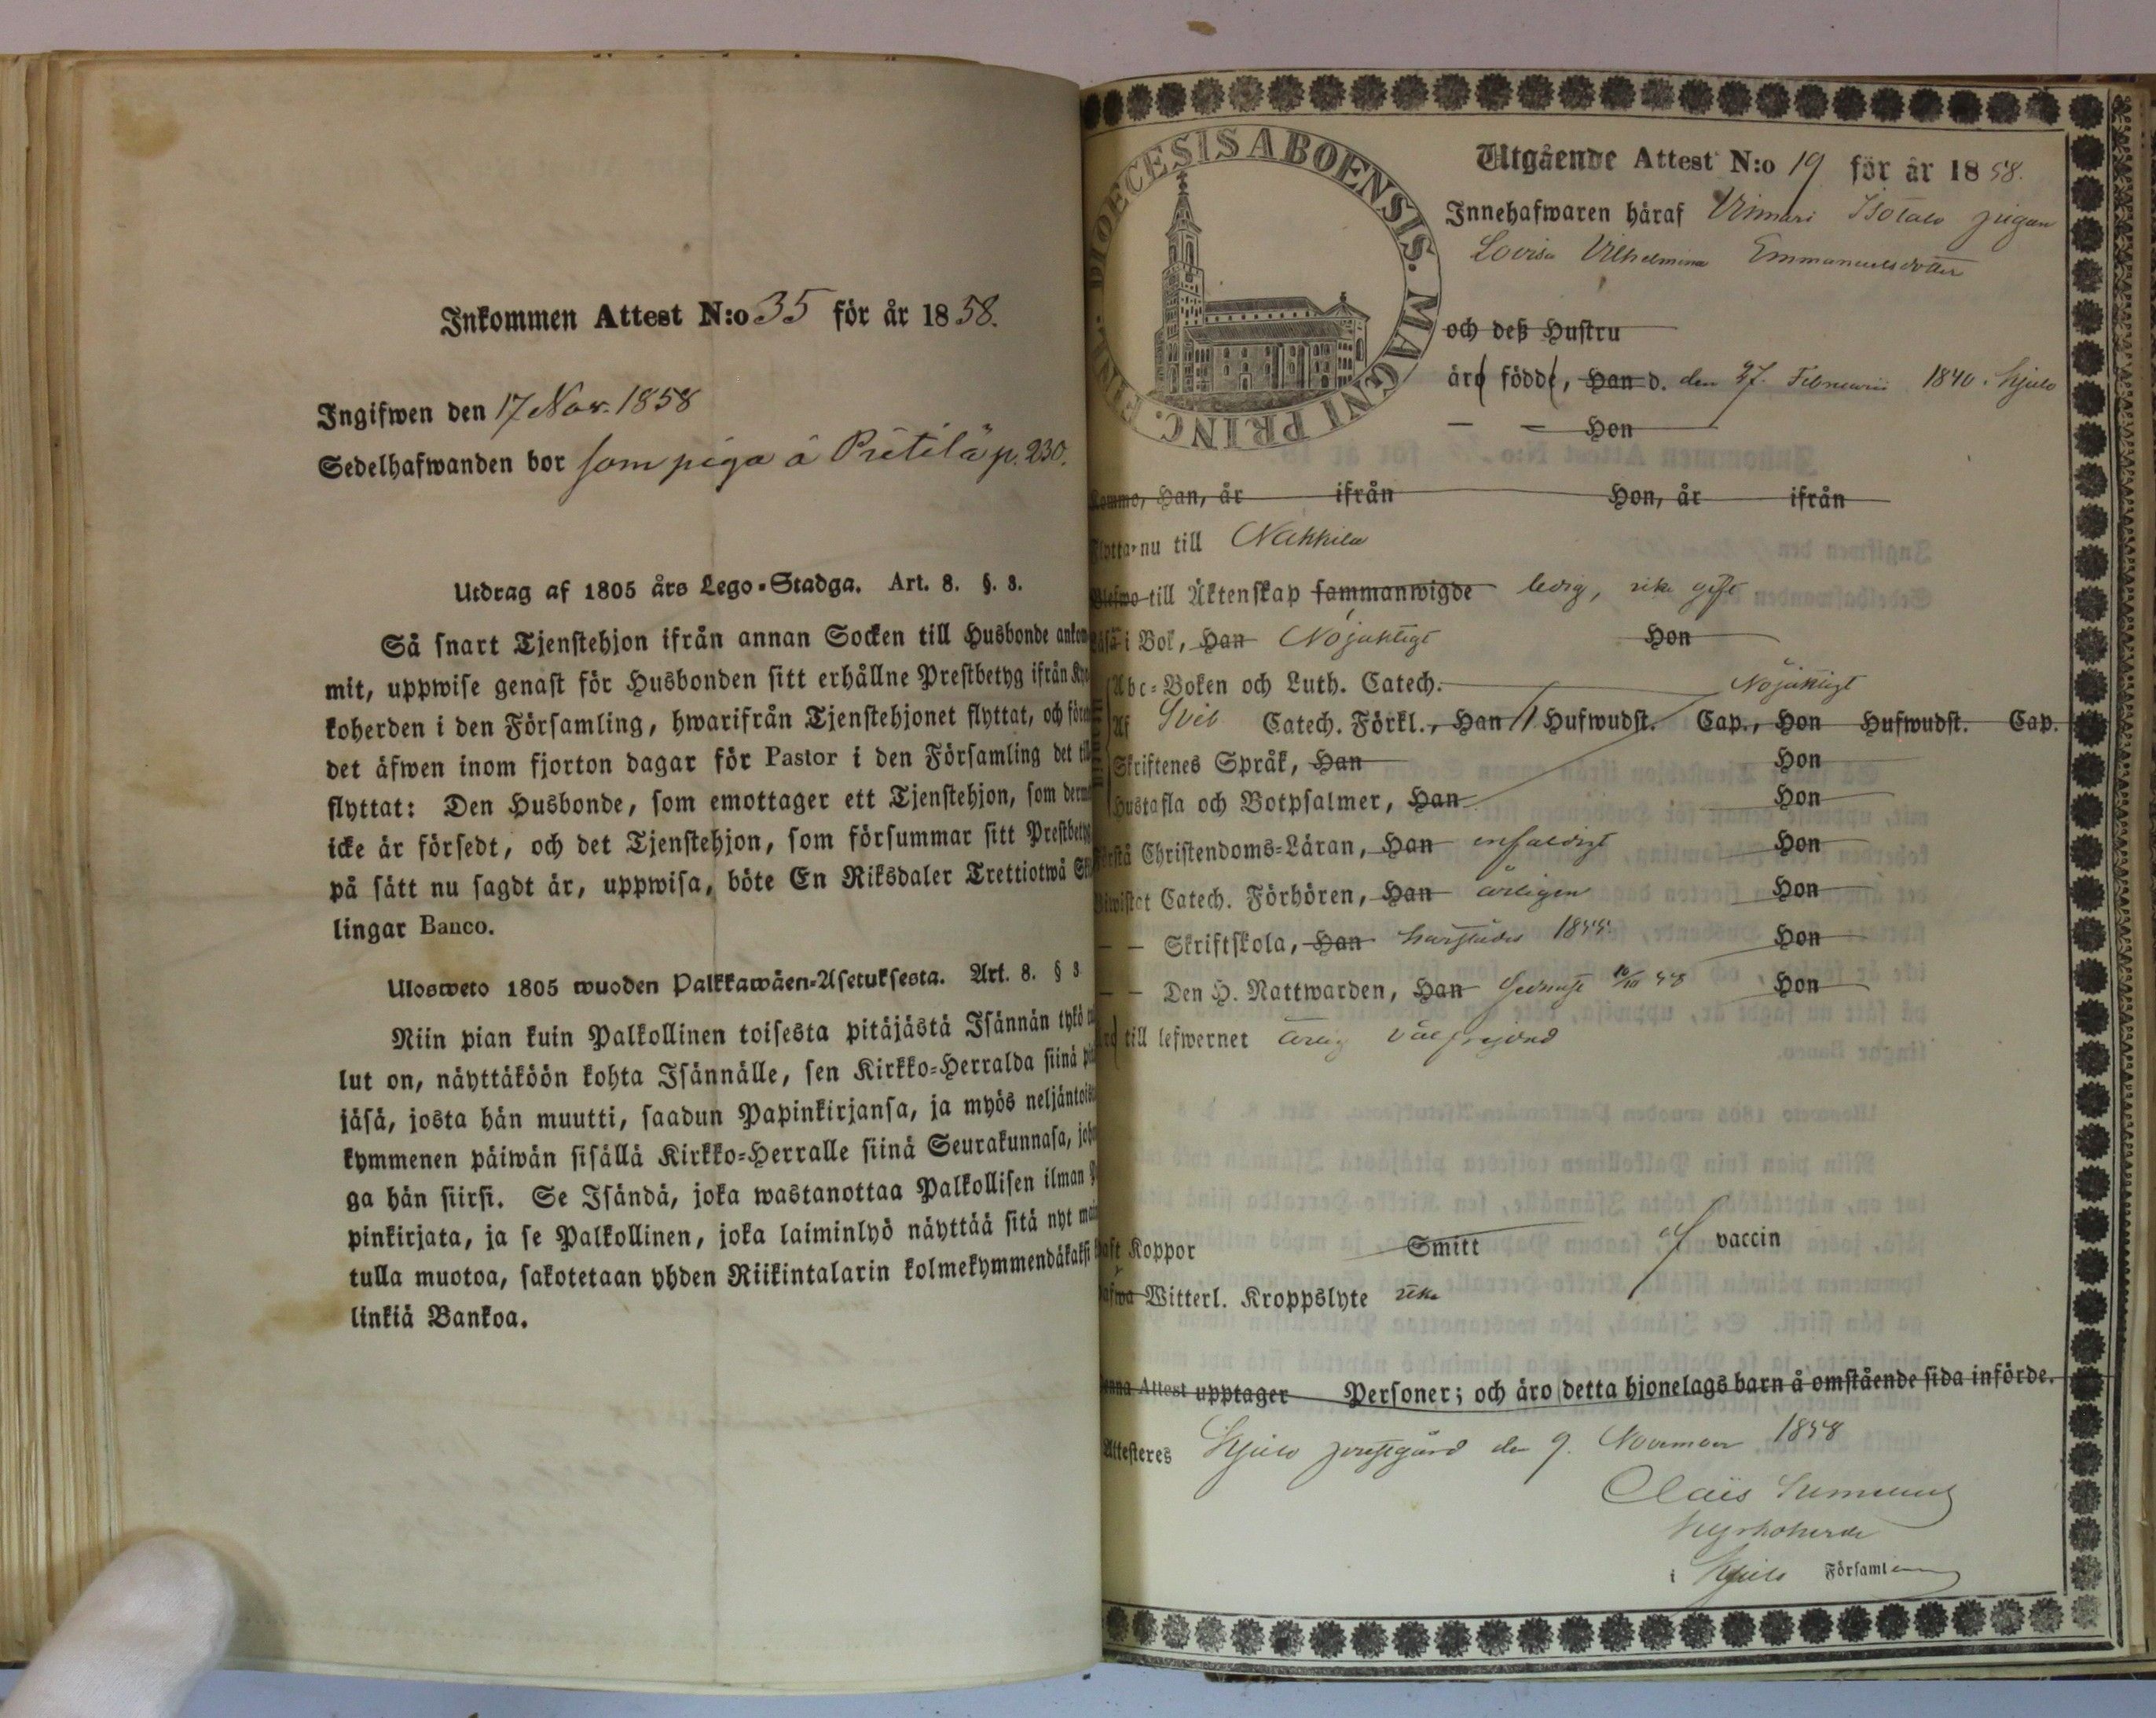 Inkommen Attest N:o 35 för år 1858.
Ingifwen den 17 Nov. 1858
Sedelhafwanden bor som piga å Pritilä p. 230.
Utdrag af 1805 års Lego-Stadga. Art. 8. §. 3.
Så snart Tjenstehjon ifrån annan Socken till Husbonde ankom
mit, uppwise genast för Husbonden sitt erhållne Prestbetyg ifrån Kyr
koherden i den Församling, hwarifrån Tjenstehjonet flyttat, och före
det äfwen inom fjorton dagar för Pastor i den Församling det till
flyttat: Den Husbonde, som emottager ett Tjenstehjon, som dermed
icke är försedt, och det Tjenstehjon, som försummar sitt Prestbetyg
på sätt nu sagdt är, uppwisa, böte En Riksdaler Trettiotwå Skil
lingar Banco.
Ulosweto 1805 wuoden Palkkawäen-Asetuksesta. Art. 8. § 3
Niin pian kuin Palkollinen toisesta pitäjästä Isännän tykö
lut on, näyttäköön kohta Isännälle, sen Kirkko-Herralda siinä pi
jäsä, josta hän muutti, saadun Papinkirjansa, ja myös neljäntois
kymmenen päiwän sisällä Kirkko-Herralle siinä Seurakunnasa, joho
ga hän siirsi. Se Isändä, joka wastanottaa Palkollisen ilman P
pinkirjata, ja se Palkollinen, joka laiminlyö näyttää sitä nyt mai
tulla muotoa, sakotetaan yhden Riikintalarin kolmekymmendäkaksi
linkiä Bankoa.
DIOECESIS ABOENSIS. MAGNI PRINC. FINL.
Utgående Attest N:o 19 för år 1858.
Innehafwaren häraf Vinnari Isotalo pigan
Lovisa Vilhelmina Emmanuelsdotter
och deß Hustru
äro födde, Han d. den 27. Februarii 1840. Kjulo
— — Hon
Kommo, Han, år ifrån Hon, år ifrån
Flytta nu till Nakkila
Blefwo till Äktenskap sammanwigde ledig, icke gift
Läsa i Bok, Han Nöjaktigt Hon
Abc-Boken och Luth. Catech. Nöjaktigt
Af Sveb Catech. Förkl., Han Hufwudst. Cap., Hon Hufwudst. Cap.
Skriftenes Språk, Han Hon
Hustafla och Botpsalmer, Han Hon
Förstå Christendoms-Läran, Han enfaldigt Hon
Biwistat Catech. Förhören, Han årligen Hon
— — Skriftskola, Han Hon
— — Den H. Nattwarden, Han Hon
Äro till lefwernet ärlig välfrejdad
Haft Koppor Smitt af vaccin
Hafwa Witterl. Kroppslyte icke
Denna Attest upptager Personer; och äro detta hjonelags barn å omstående sida införde.
Attesteres Kjulo prestgård den 9. November 1858
Claës
Kyrkoherde
i Kjulo Församl